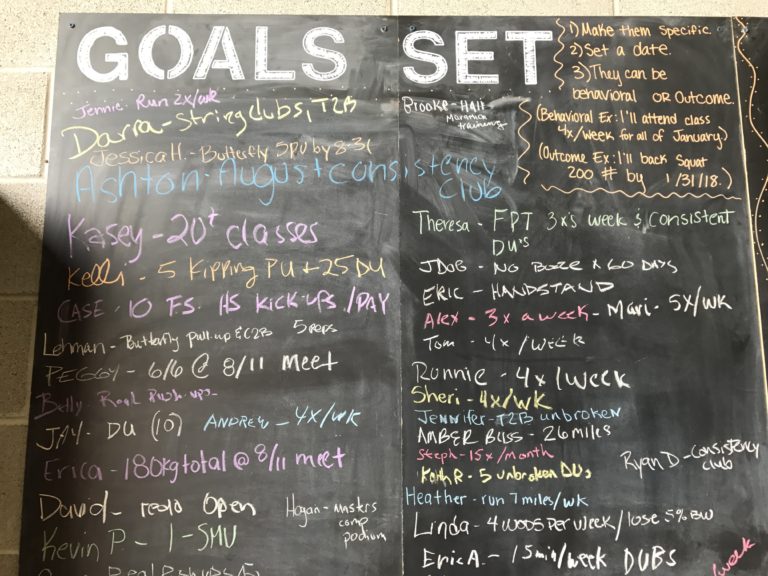 GOALS SET
1) Make them Specific.
2) Set a date.
3) They can be
behavioral OR Outcome.
(Behavioral Ex: I'll attend class
4x/week for all of January)
(Outcome Ex: I'll back squat
200 # by 1/31/18.)
Jennie Run 2x/wk
Darra - String dubs, T2B
Jessica H. - Butterfly 5 PU by 8-31
Ashton - August consistency
club
Kasey - 20+ classes
Kelli - 5 Kipping PU + 25 DU
CASE - 10 FS. HS KICK-UPS /DAY
Lehman - Butterfly pull-up & C2B 5 reps
PEGGY - 6/6 @ 8/11 meet
Betty - Real Push ups
JAY - DU (10)
ANDREW - 4x/wk
Erica - 180kg total @ 8/11 meet
David - redo Open
Hogan - masters
comp
podium
Kevin P - 1 - SMU
Real Pshups
Brooke - Half
Marathon
training
Theresa - FPT 3x's week & Consistent
DU's
JDOB - NO BOOZE x 60 DAYS
ERIC - HANDSTAND
Alex - 3x a week - Mari - 5X/wk
Tom - 4x /WEEK
Ronnie - 4x/week
Sheri - 4x/wk
Jennifer - T2B unbroken
AMBER BLISS - 26 miles
Steph - 15x/month
Ryan D - Consistency
club
Keith R - 5 unbroken DUs
Heather - run 7 miles/wk
Linda - 4 WODS Per week / lose 5% BW
Eric A. - 15 min/week DUBS
/week